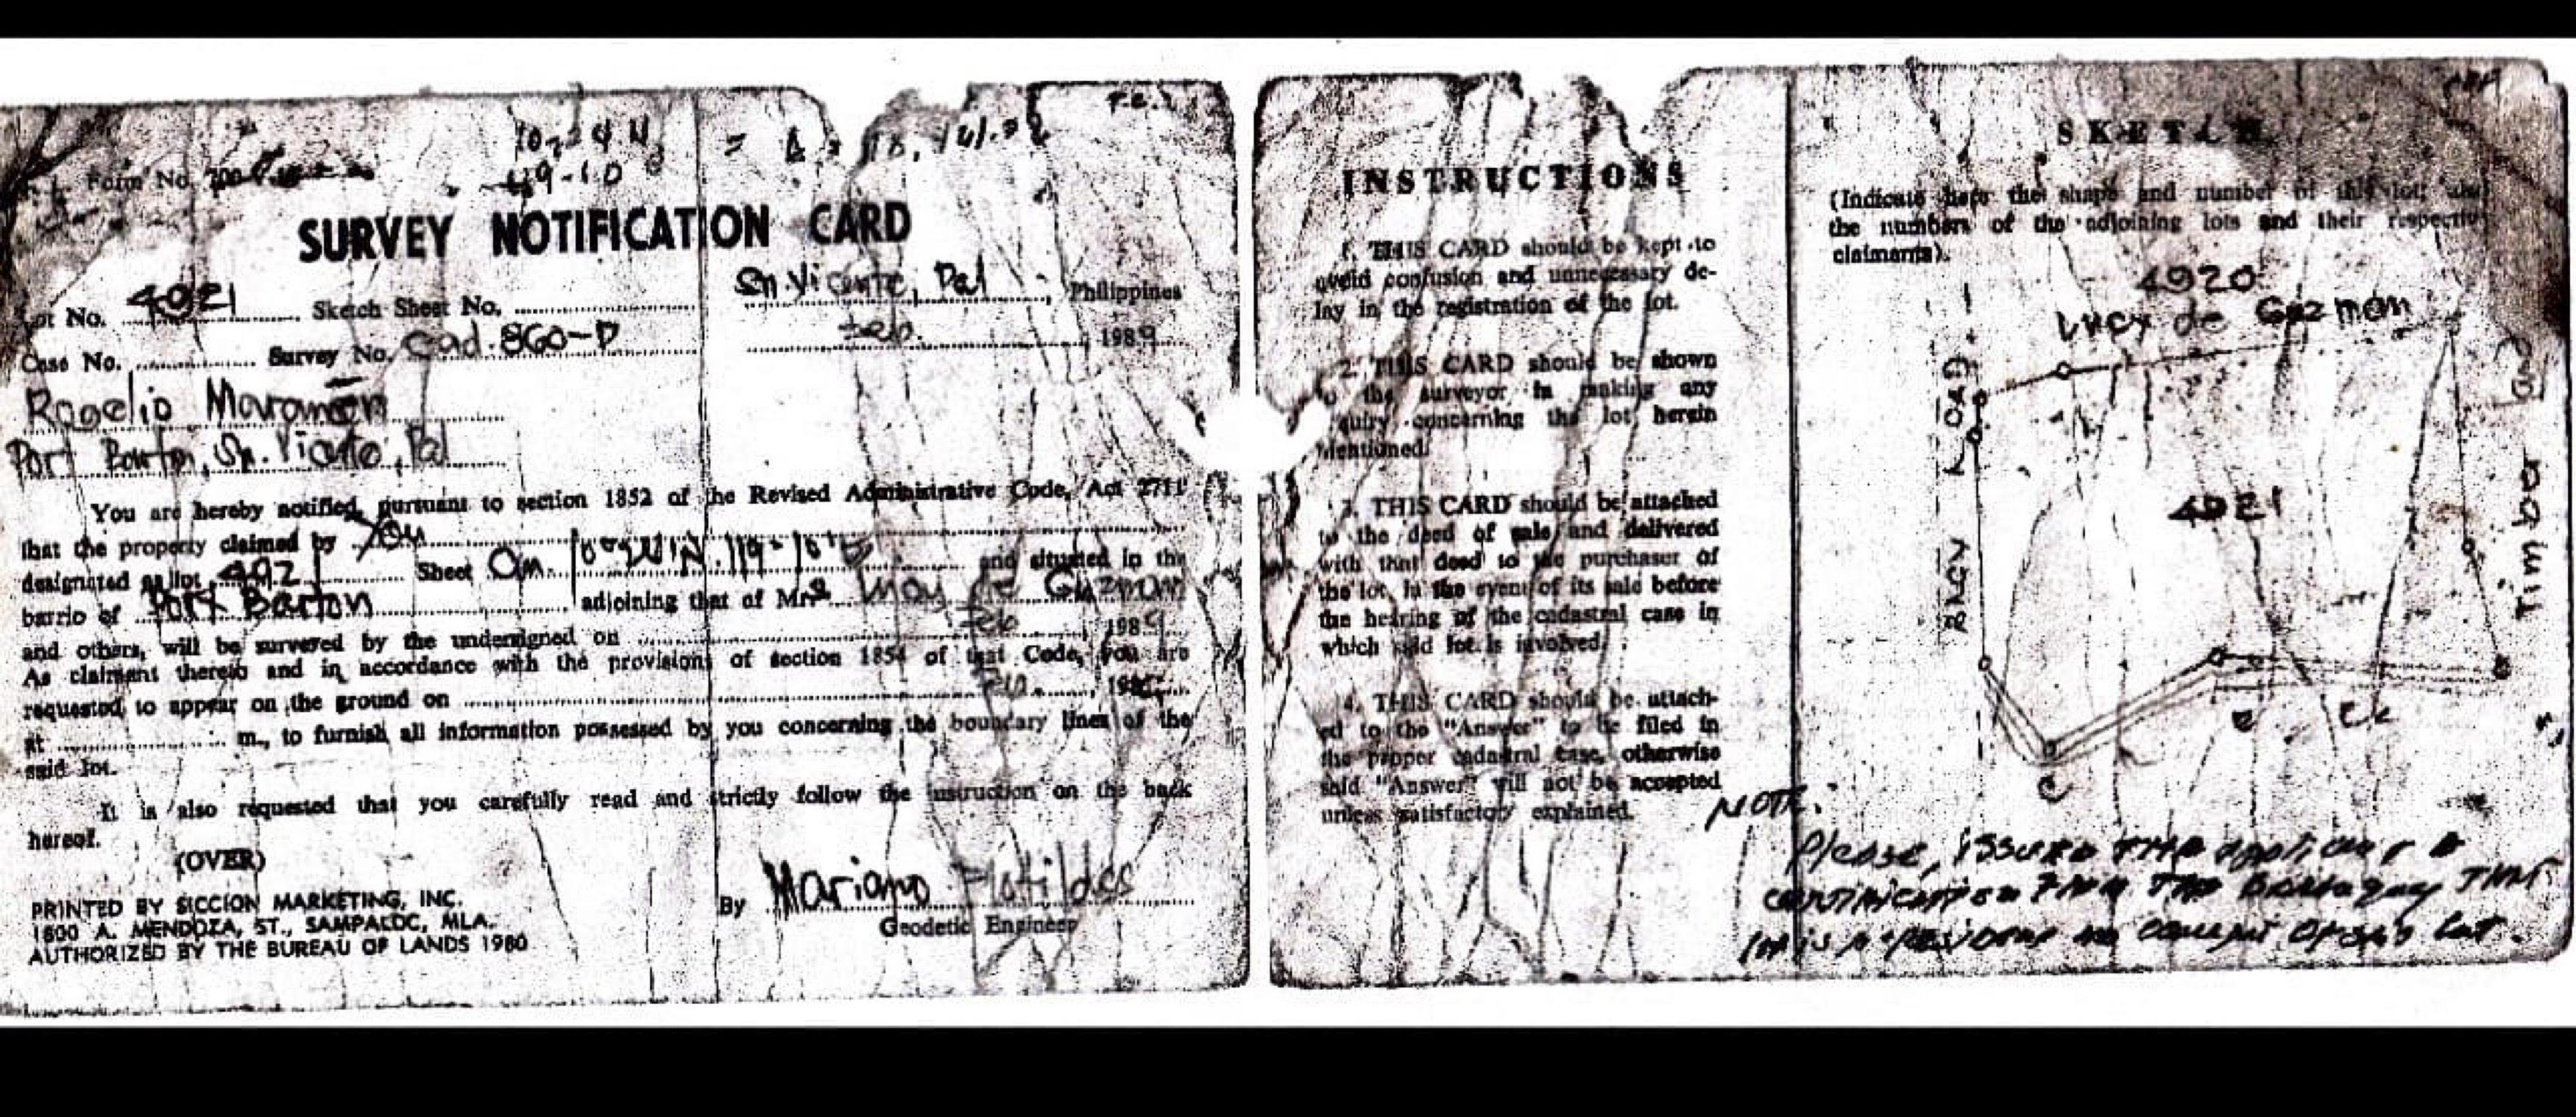 Form No. 700
SURVEY NOTIFICATION CARD
Lot No. 4921 Sketch Sheet No.
Sn. Vicente, Pal, Philippines
Case No. Survey No. Cad. 860-D
Feb. 1989
Rogelio
Port Barton, Sn. Vicente, Pal
You are hereby notified, pursuant to section 1852 of the Revised Administrative Code, Act 2711
that the property claimed by You
designated as lot 4921 Sheet and situated in the
barrio of Port Barton adjoining that of Mrs. de Guzman
and others, will be surveyed by the undersigned on Feb 1989
As claimant thereto and in accordance with the provisions of section 1854 of that Code, you are
requested to appear on the ground on
at m., to furnish all information possessed by you concerning the boundary lines of the
said lot.
It is also requested that you carefully read and strictly follow the instruction on the back
hereof.
(OVER)
PRINTED BY SICCION MARKETING, INC.
1800 A. MENDOZA, ST., SAMPALOC, MLA.
AUTHORIZED BY THE BUREAU OF LANDS 1980
By Mariano
Geodetic Engineer
INSTRUCTIONS
1. THIS CARD should be kept to
avoid confusion and unnecessary de-
lay in the registration of the lot.
2. THIS CARD should be shown
to the surveyor in making any
quiry concerning the lot herein
mentioned.
3. THIS CARD should be attached
to the deed of sale and delivered
with that deed to the purchaser of
the lot, in the event of its sale before
the hearing of the cadastral case in
which said lot is involved.
4. THIS CARD should be attach-
ed to the "Answer" to be filed in
the proper cadastral case, otherwise
said "Answer" will not be accepted
unless satisfactory explained.
SKETCH
(Indicate here the shape and number of this lot, also
the numbers of the adjoining lots and their respective
claimants).
4920
Lucy de Guzman
BRGY ROAD
4921
Timber
C
NOTE:
Please, issue the applicant a
certification from the Barangay that